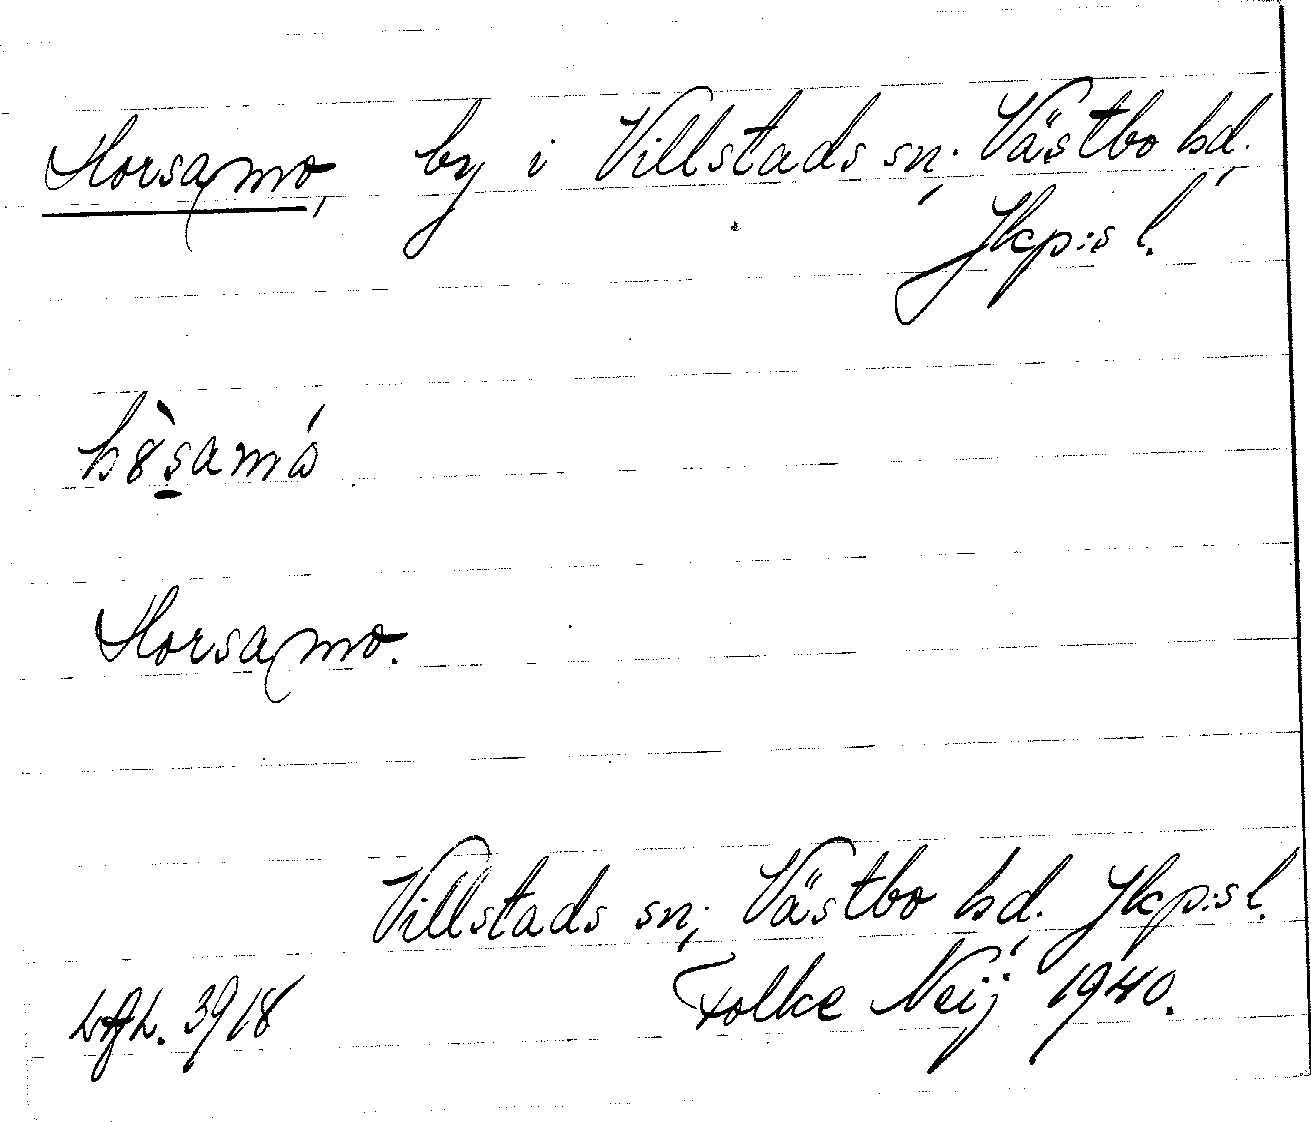 Horsamo, by i Villstads sn, Västbo hd,
Jkp:s l.
hòsamå
Horsamo.
Villstads sn, Västbo hd, Jkp:s l.
Folke Neij 1940.
3918